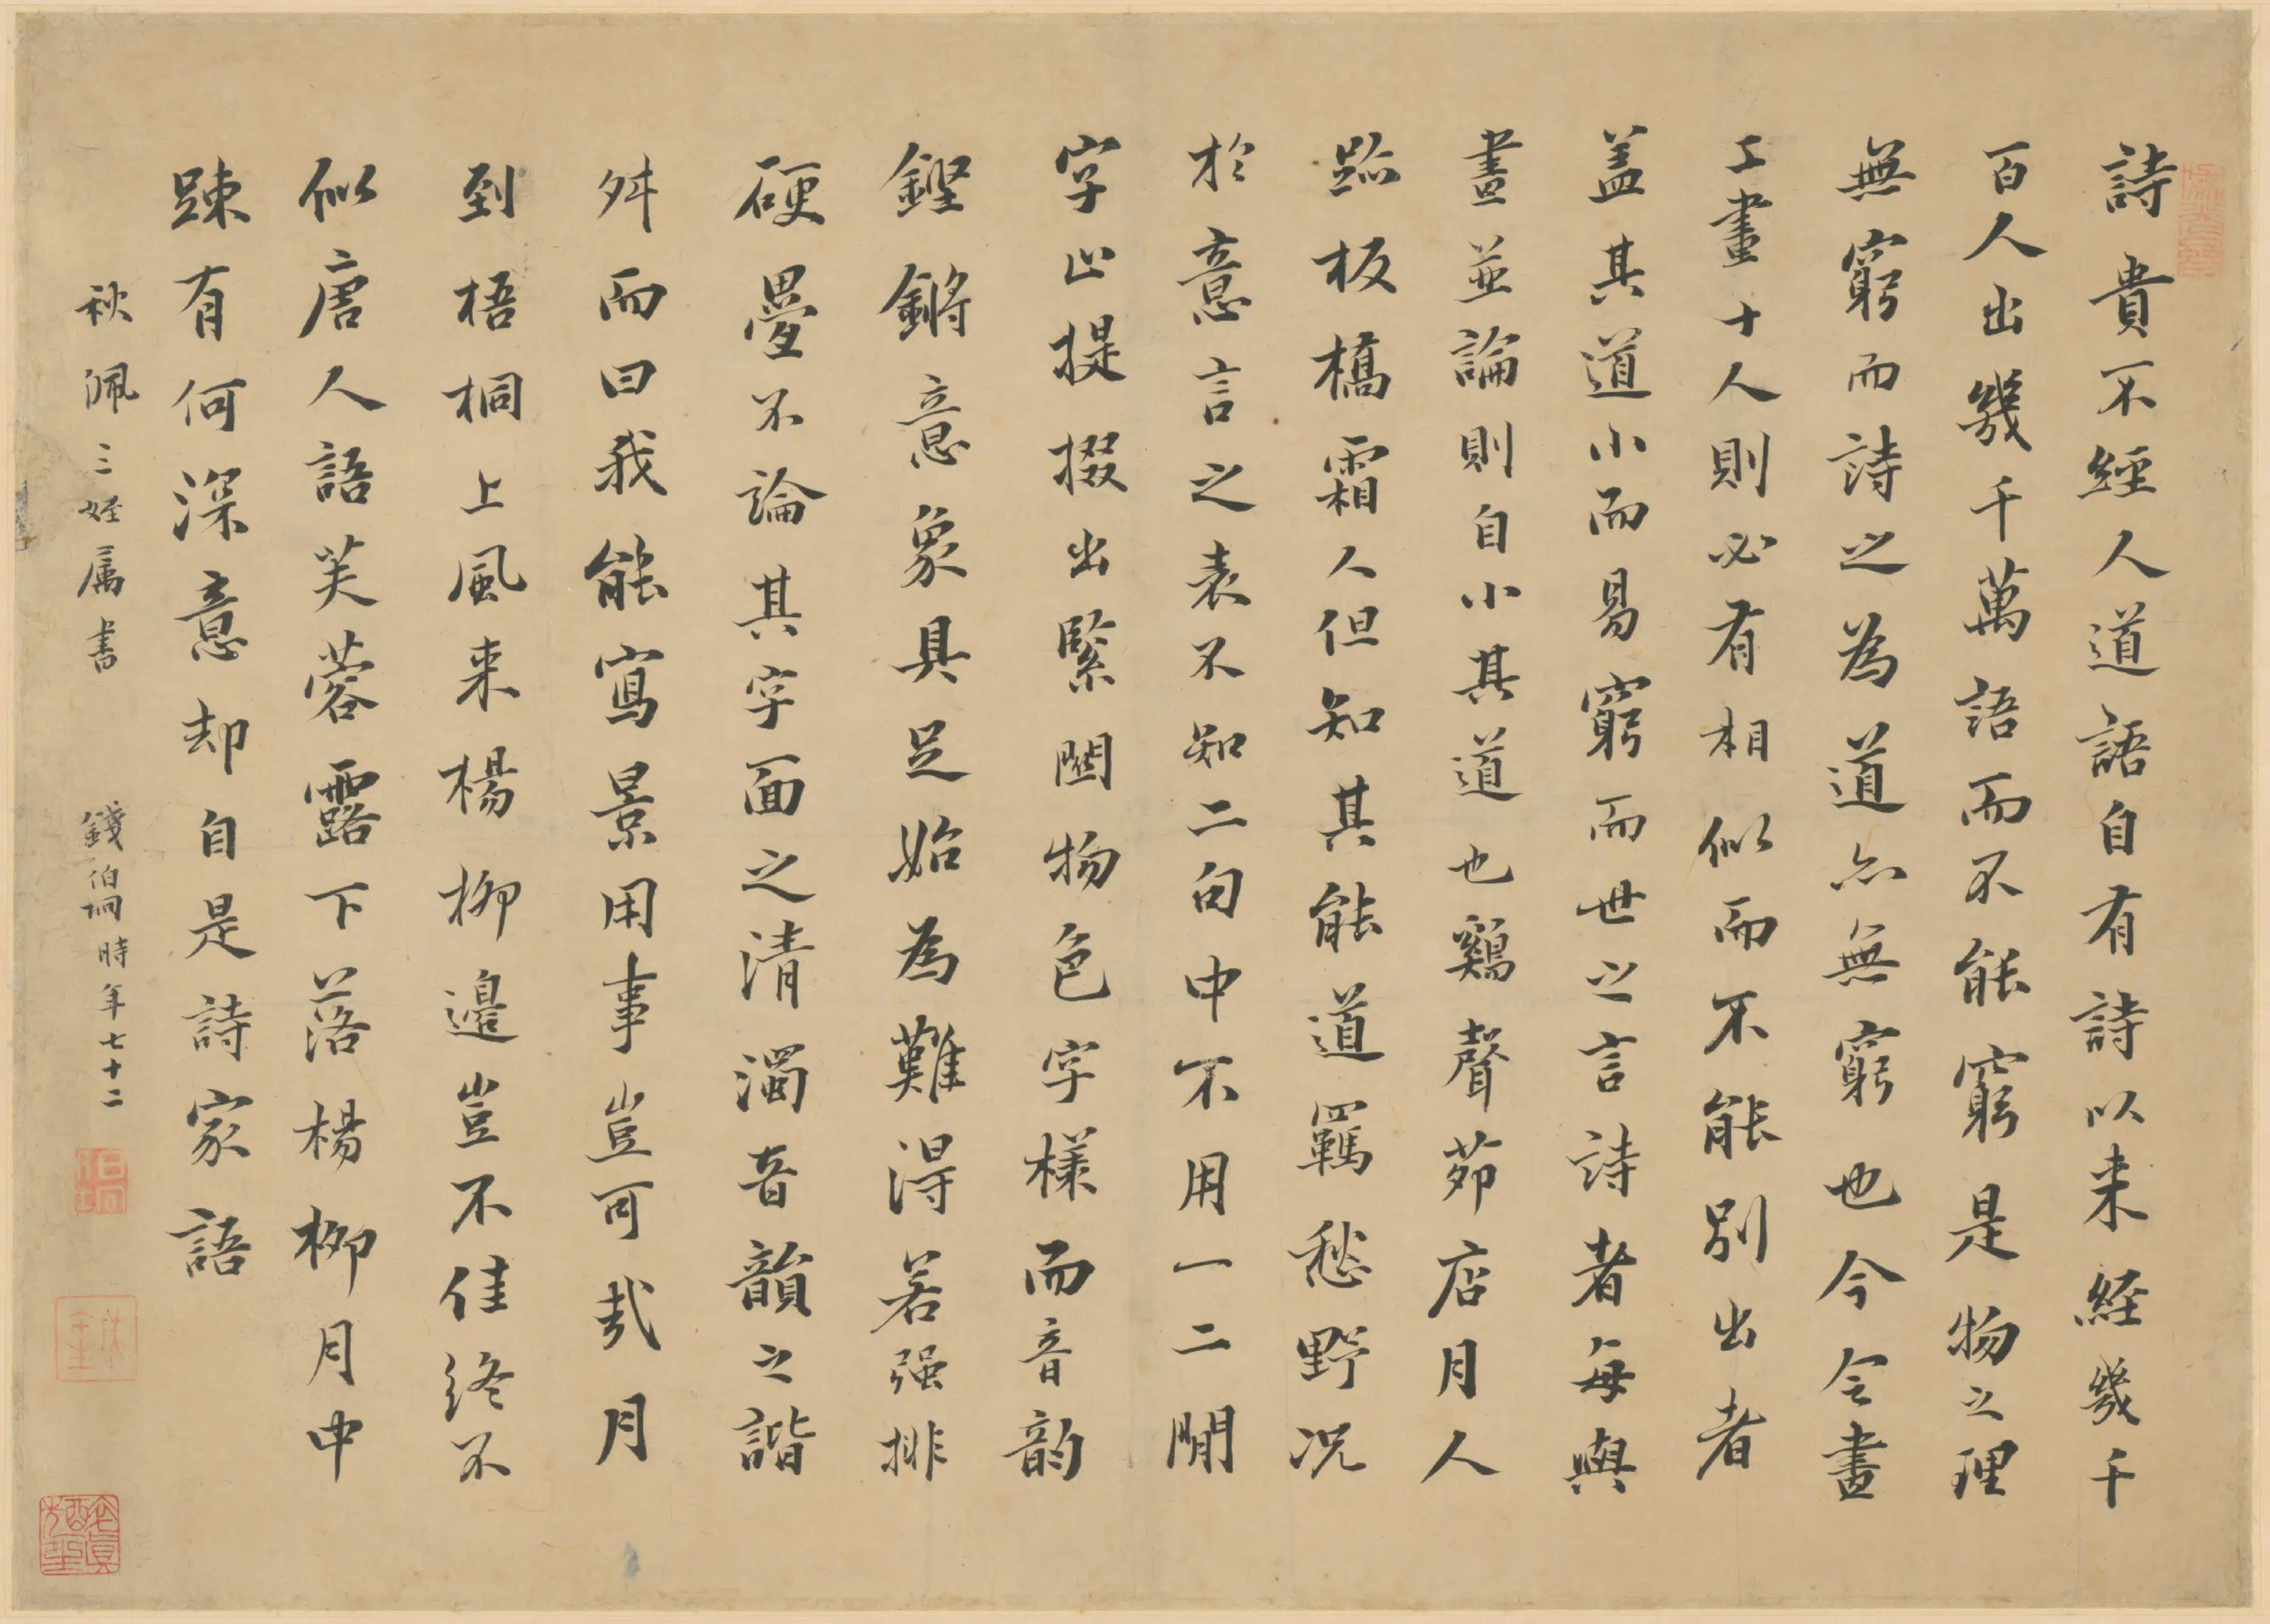 詩貴不經人道語自有詩以来經幾千
百人出幾千萬語而不能窮是物之理
無窮而詩之為道亦無窮也今令畫
工畫十人則必有相似而不能別出者
蓋其道小而易窮而世之言詩者每與
畫並論則自小其道也鷄聲茆店月人
跡板橋霜人但知其能道羈愁野况
於意言之表不知二句中不用一二閒
字止提掇出緊關物色字樣而音韵
鏗鏘意象具足始為難得若强排
硬疊不論其字面之清濁音韻之諧
舛而曰我能寫景用事豈可哉月
到梧桐上風来楊柳邊豈不佳終不
似唐人語芙蓉露下落楊柳月中
踈有何深意却自是詩家語
秋佩三姪属書
錢伯坰時年七十二